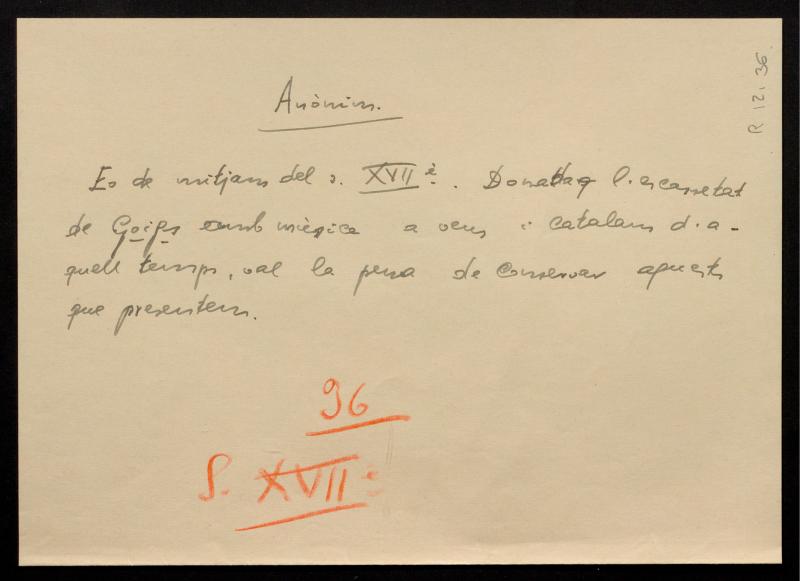 R 121.36
Anònim.
Es de mitjans del s. XVIIè. Donada l'escassetat
de Goigs amb música a veus i catalans d'a-
quell temps, val la pena de conservar aquests
que presentem.
96
S. XVIIè